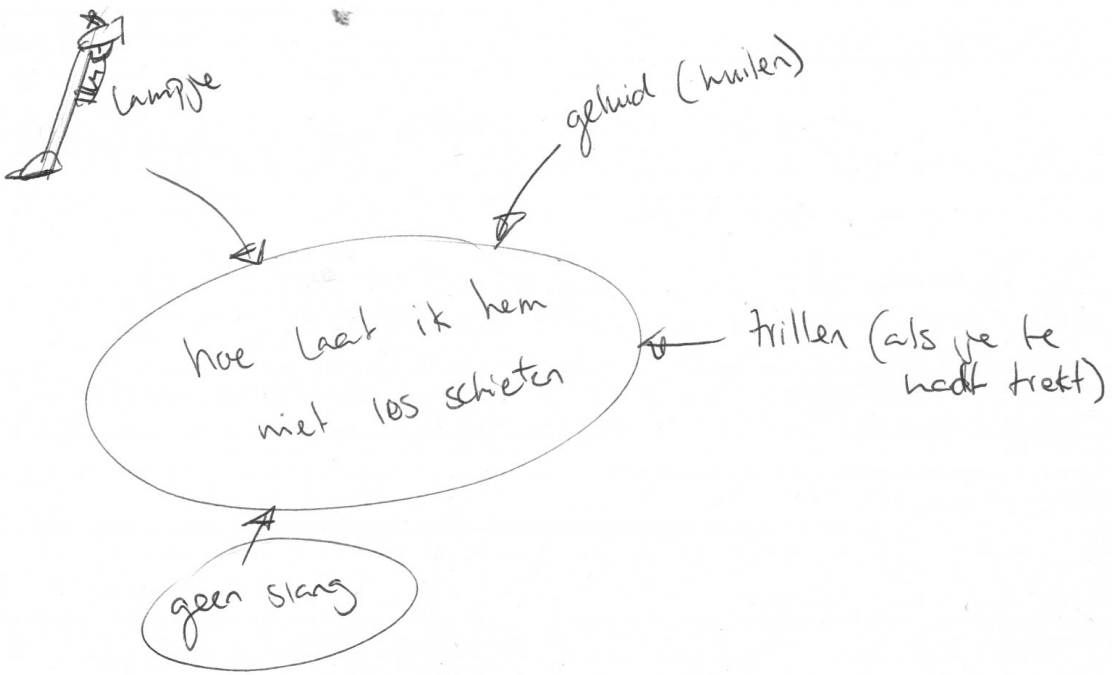 lampje
geluid (huilen)
hoe laat ik hem
niet los schieten
trillen (als je te
hadt trekt)
geen slang